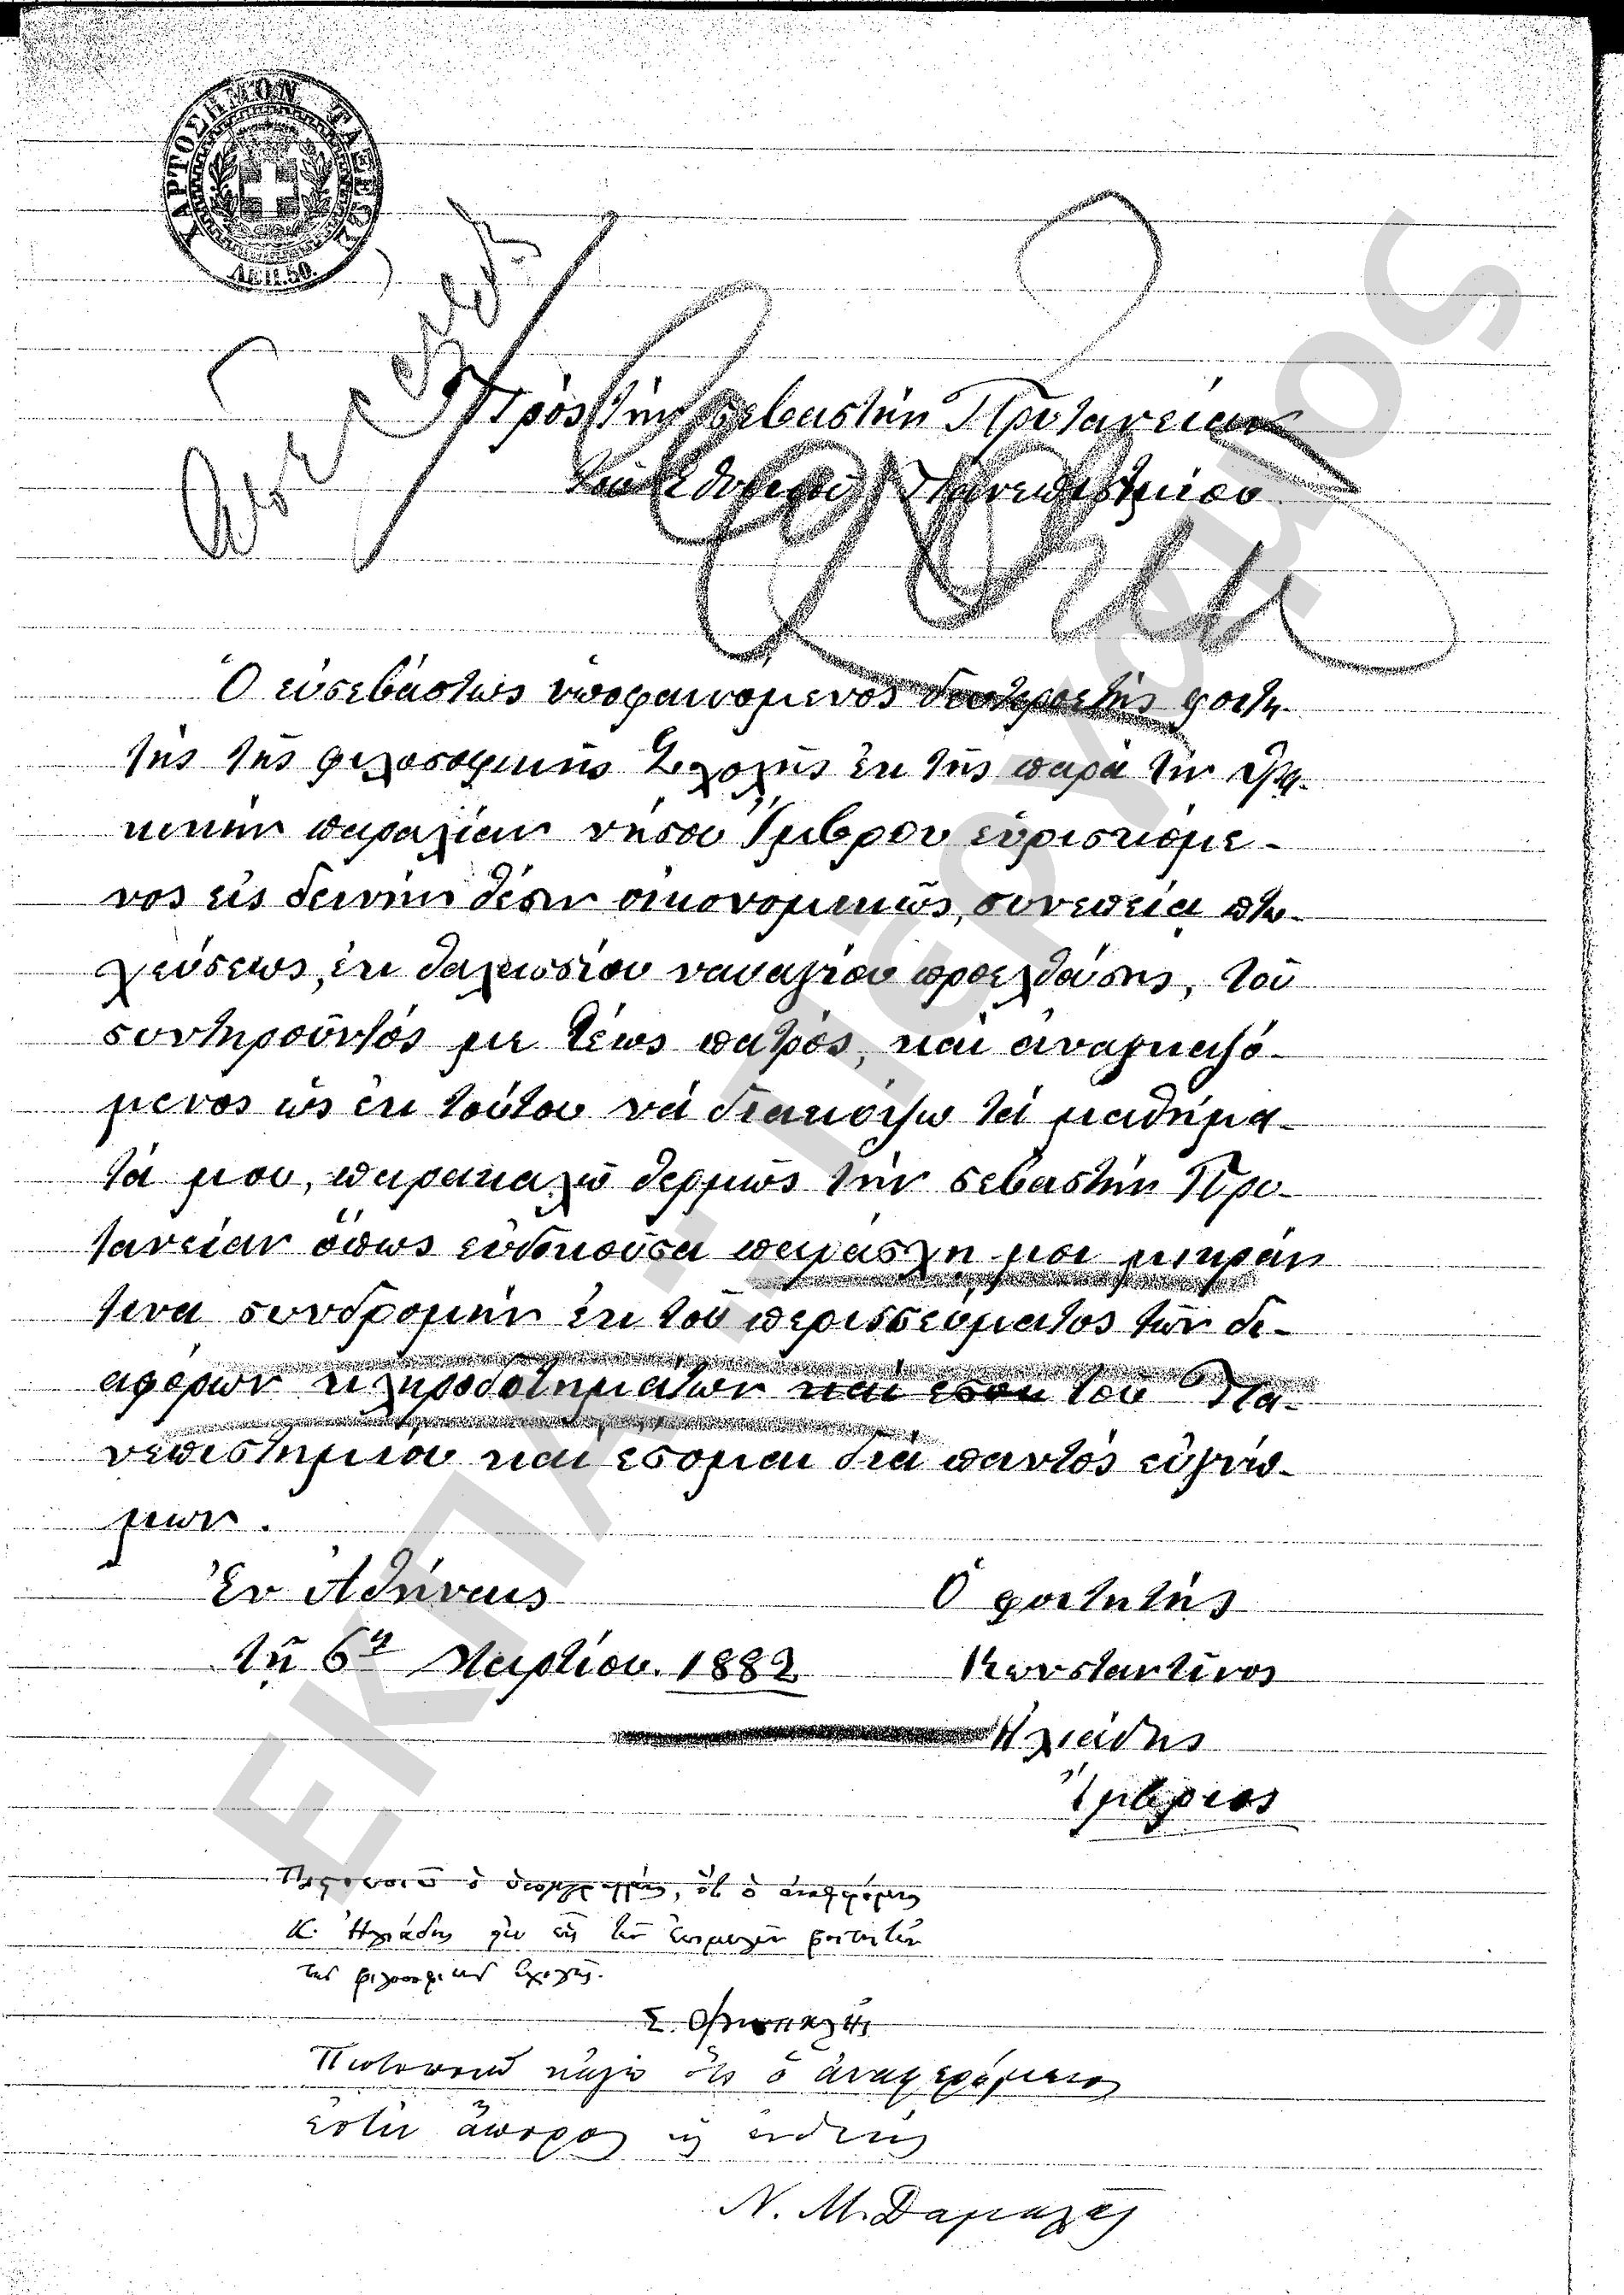 ΧΑΡΤΟΣΗΜΟΝ ΤΑΞΕΩΣ
ΛΕΠ. 50.
Πρὸς τὴν σεβαστὴν Πρυτανείαν
τοῦ Ἐθνικοῦ Πανεπιστημίου
Ὁ εὐσεβάστως ὑποφαινόμενος δευτεροετὴς φοιτη-
τὴς τῆς φιλοσοφικῆς Σχολῆς ἐκ τῆς παρὰ τὴν Θρᾳ-
κικὴν παραλίαν νήσου Ἴμβρου εὑρισκόμε-
νος εἰς δεινὴν θέσιν οἰκονομικῶς, συνεπείᾳ πτω-
χεύσεως, ἐκ θαλασσίου ναυαγίου προελθούσης, τοῦ
συντηροῦντός με τέως πατρός, καὶ ἀναγκαζό-
μενος ὡς ἐκ τούτου νὰ διακόψω τὰ μαθήμα-
τά μου, παρακαλῶ θερμῶς τὴν σεβαστὴν Πρυ-
τανείαν ὅπως εὐδοκοῦσα παράσχῃ μοι μικράν
τινα συνδρομὴν ἐκ τοῦ περισσεύματος τῶν δι-
αφόρων κληροδοτημάτων καὶ εσομ τοῦ Πα-
νεπιστημίου καὶ ἔσομαι διὰ παντὸς εὐγνώ-
μων.
Ἐν Ἀθήναις
Ὁ φοιτητὴς
τῇ 6ῃ Μαρτίου 1882
Κωνσταντῖνος
Ἠλιάδης
Ἴμβριος
Πιστοποιῶ ὁ ὑπογεγραμμένος, ὅτι ὁ ἀναφερόμενος
Κ. Ἠλιάδης εἷς τῶν ἐπιμελῶν φοιτητῶν
τῆς φιλοσοφικῆς Σχολῆς.
Σ.
Πιστοποιῶ κἀγὼ ὅτι ὁ ἀναφερόμενος
ἐστὶν ἄπορος κ ἐνδεής
Ν. Μ. Δαμαλᾶς
ΕΚΠΑ - ΠΕΡΓΑΜΟΣ